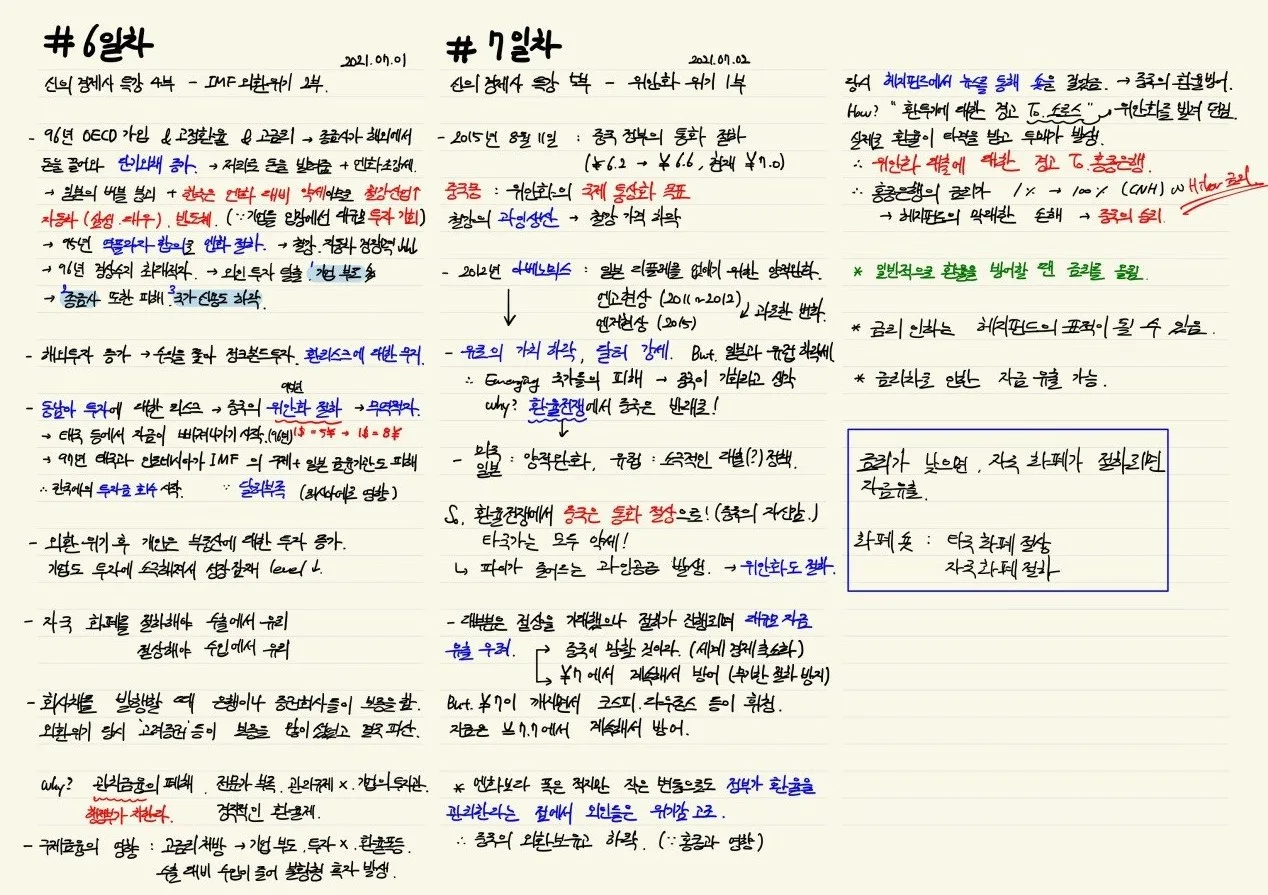 # 6일차
2021.07.01
신의 경제사 특강 4부 - IMF 외환위기 2부.
- 96년 OECD 가입 & 고정환율 & 고금리 → 종금사가 해외에서
돈을 끌어와 단기외채 증가. → 저리로 돈을 빌려줌 + 엔화초강세.
→ 일본의 버블 붕괴 + 한국은 엔화 대비 약세이므로 철강산업↑
자동차 (삼성·대우), 반도체. (∵ 기업들 입장에선 대규모 투자 기회)
→ 95년 역플라자 합의로 엔화 절하. → 철강·자동차 경쟁력 ↓↓↓
→ 96년 경상수지 최대적자. → 외인 투자 탈출 1기업 부도
→ 2종금사 또한 피해 3국가 신용도 하락.
- 해외투자 증가 → 수익을 쫓아 정크본드투자. 환리스크에 대한 무지.
94년
- 동남아 투자에 대한 리스크 → 중국의 위안화 절하 → 무역적자.
→ 태국 등에서 자금이 빠져나가기 시작. (96년) 1$ = 5¥ → 1$ = 8¥
→ 97년 태국과 인도네시아가 IMF의 구제 + 일본 금융기관도 피해
∴ 한국에의 투자금 회수 시작. ∵ 달러부족 (러시아에도 영향)
- 외환위기 후 개인은 부동산에 대한 투자 증가.
기업도 투자에 소극해져서 성장잠재 level ↓.
- 자국 화폐를 절하해야 수출에서 유리
절상해야 수입에서 유리
- 회사채를 발행할 때 은행이나 증권회사들이 보증을 함.
외환위기 당시 '고려증권' 등이 보증을 많이 섰었고 결국 파산.
Why? 관치금융의 폐해. 전문가 부족. 관리규제 ×. 기업의 투자관.
행정부가 지한다. 경직적인 환율제.
- 구제금융의 영향 : 고금리 처방 → 기업 부도. 투자 ×. 환율폭등.
수출 대비 수입이 줄어 불황형 흑자 발생.
# 7일차
2021.07.02
신의 경제사 특강 5부 - 위안화 위기 1부
- 2015년 8월 11일 : 중국 정부의 통화 절하
(¥6.2 → ¥6.6, 현재 ¥7.0)
중국몽 : 위안화의 국제 통상화 목표
철강의 과잉생산 → 철강 가격 하락
- 2012년 아베노믹스 : 일본 디플레를 없애기 위한 양적완화.
엔고현상 (2011~2012)
엔저현상 (2015) 과도한 변화.
- 유로의 가치 하락, 달러 강세. But. 일본과 유럽 하락세
∴ Emerging 국가들의 피해 → 중국이 기회라고 생각
why? 환율전쟁에서 중국은 반대로!
- 미국 일본 : 양적완화, 유럽 : 소극적인 대출(?)정책.
So, 환율전쟁에서 중국은 통화 절상으로! (중국의 자신감.)
타국가는 모두 약세!
↳ 파이가 줄어드는 과잉공급 발생. → 위안화도 절하.
- 대부분은 절상을 기대했으나 절하가 진행되며 대규모 자금
유출 우려. → 중국이 망할 것이다. (세계 경제 축소화)
→ ¥7에서 계속해서 방어 (무기한 절하 방지)
But. ¥7이 깨지면서 코스피·다우존스 등이 휘청.
지금은 ¥7.7에서 계속해서 방어.
* 엔화보다 폭은 적지만 작은 변동으로도 정부가 환율을
관리한다는 점에서 외인들은 위기감 고조.
∴ 중국의 외환보유고 하락. (∵ 홍콩과 영향)
당시 헤지펀드에서 뉴스를 통해 숏을 걸었음. → 중국의 환율방어.
How? "환투기에 대한 경고 To. 소로스" 위안화를 빌려 던짐.
실제로 환율이 타격을 받고 투매가 발생.
∴ 위안화 대출에 대한 경고 To. 홍콩은행.
∴ 홍콩은행의 금리가 1% → 100% (CNH) Hibor 금리
→ 헤지펀드의 막대한 손해 → 중국의 승리.
* 일반적으로 환율을 방어할 땐 금리를 올림.
* 금리 인하는 헤지펀드의 표적이 될 수 있음.
* 금리차로 인한 자금 유출 가능.
금리가 낮으면, 자국 화폐가 절하되면
자금유출.
화폐 숏 : 타국 화폐 절상
자국 화폐 절하